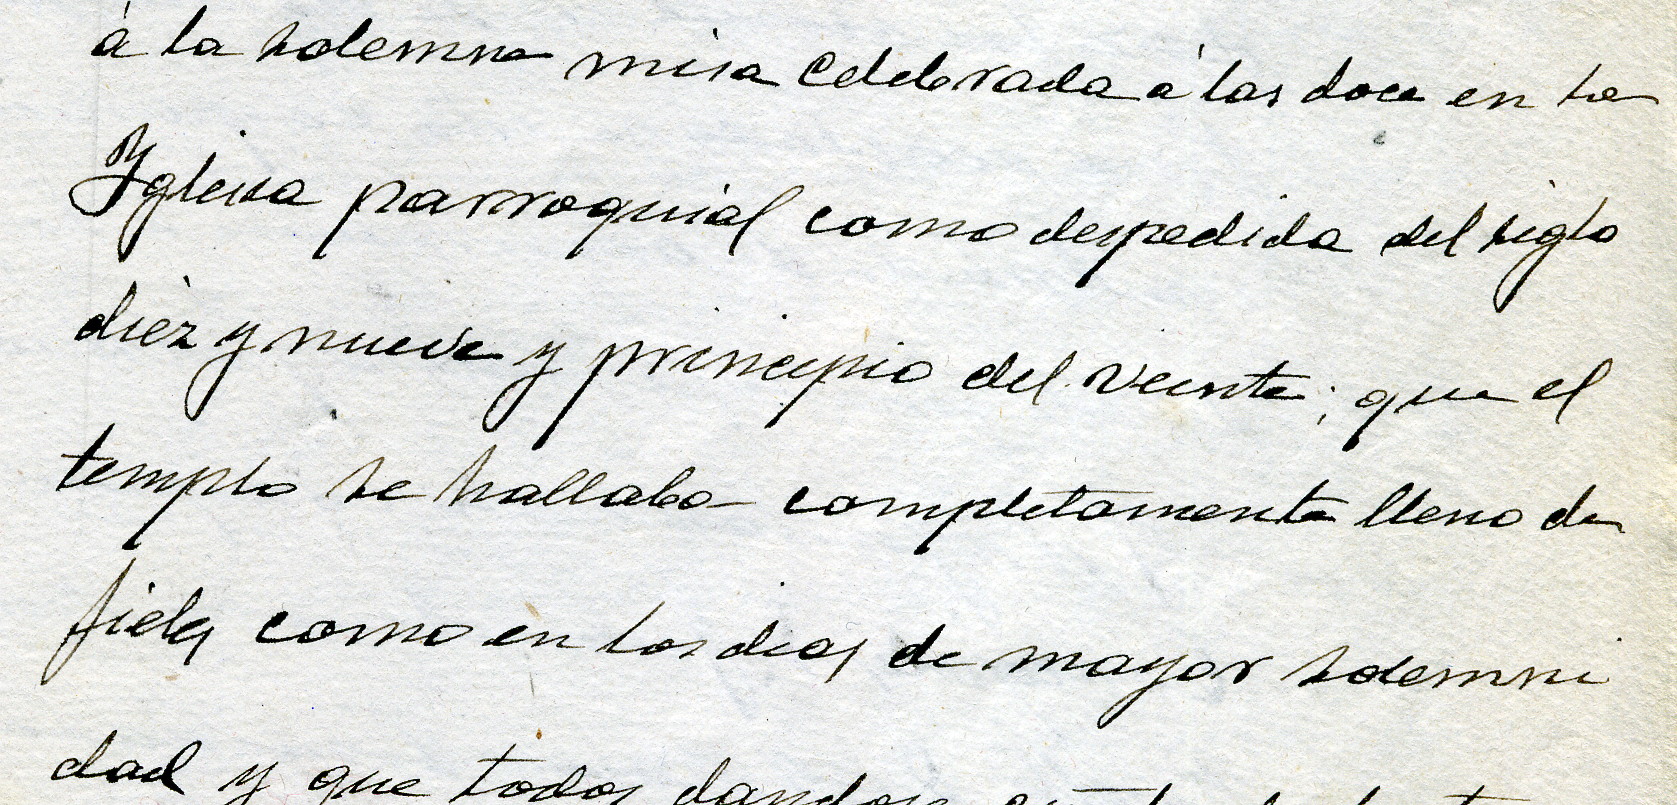 á la solemne misa celebrada á las doce en la
Yglesia parroquial como despedida del siglo
diéz y nueve y principio del veinte; que el
templo se hallaba completamente lleno de
fieles como en los dias de mayor solemni
dad y que todos dandose